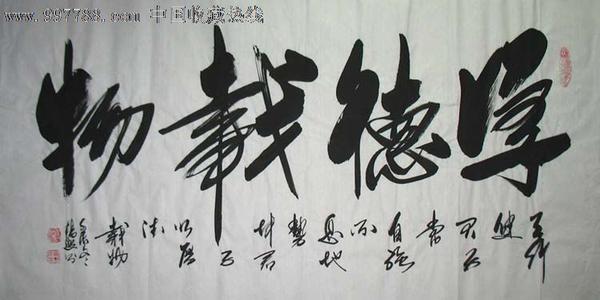 www.997788.com 中国收藏热线
厚德載物
天行
健
君子
自強
不
息地
勢
坤君
子
以厚
德
載物